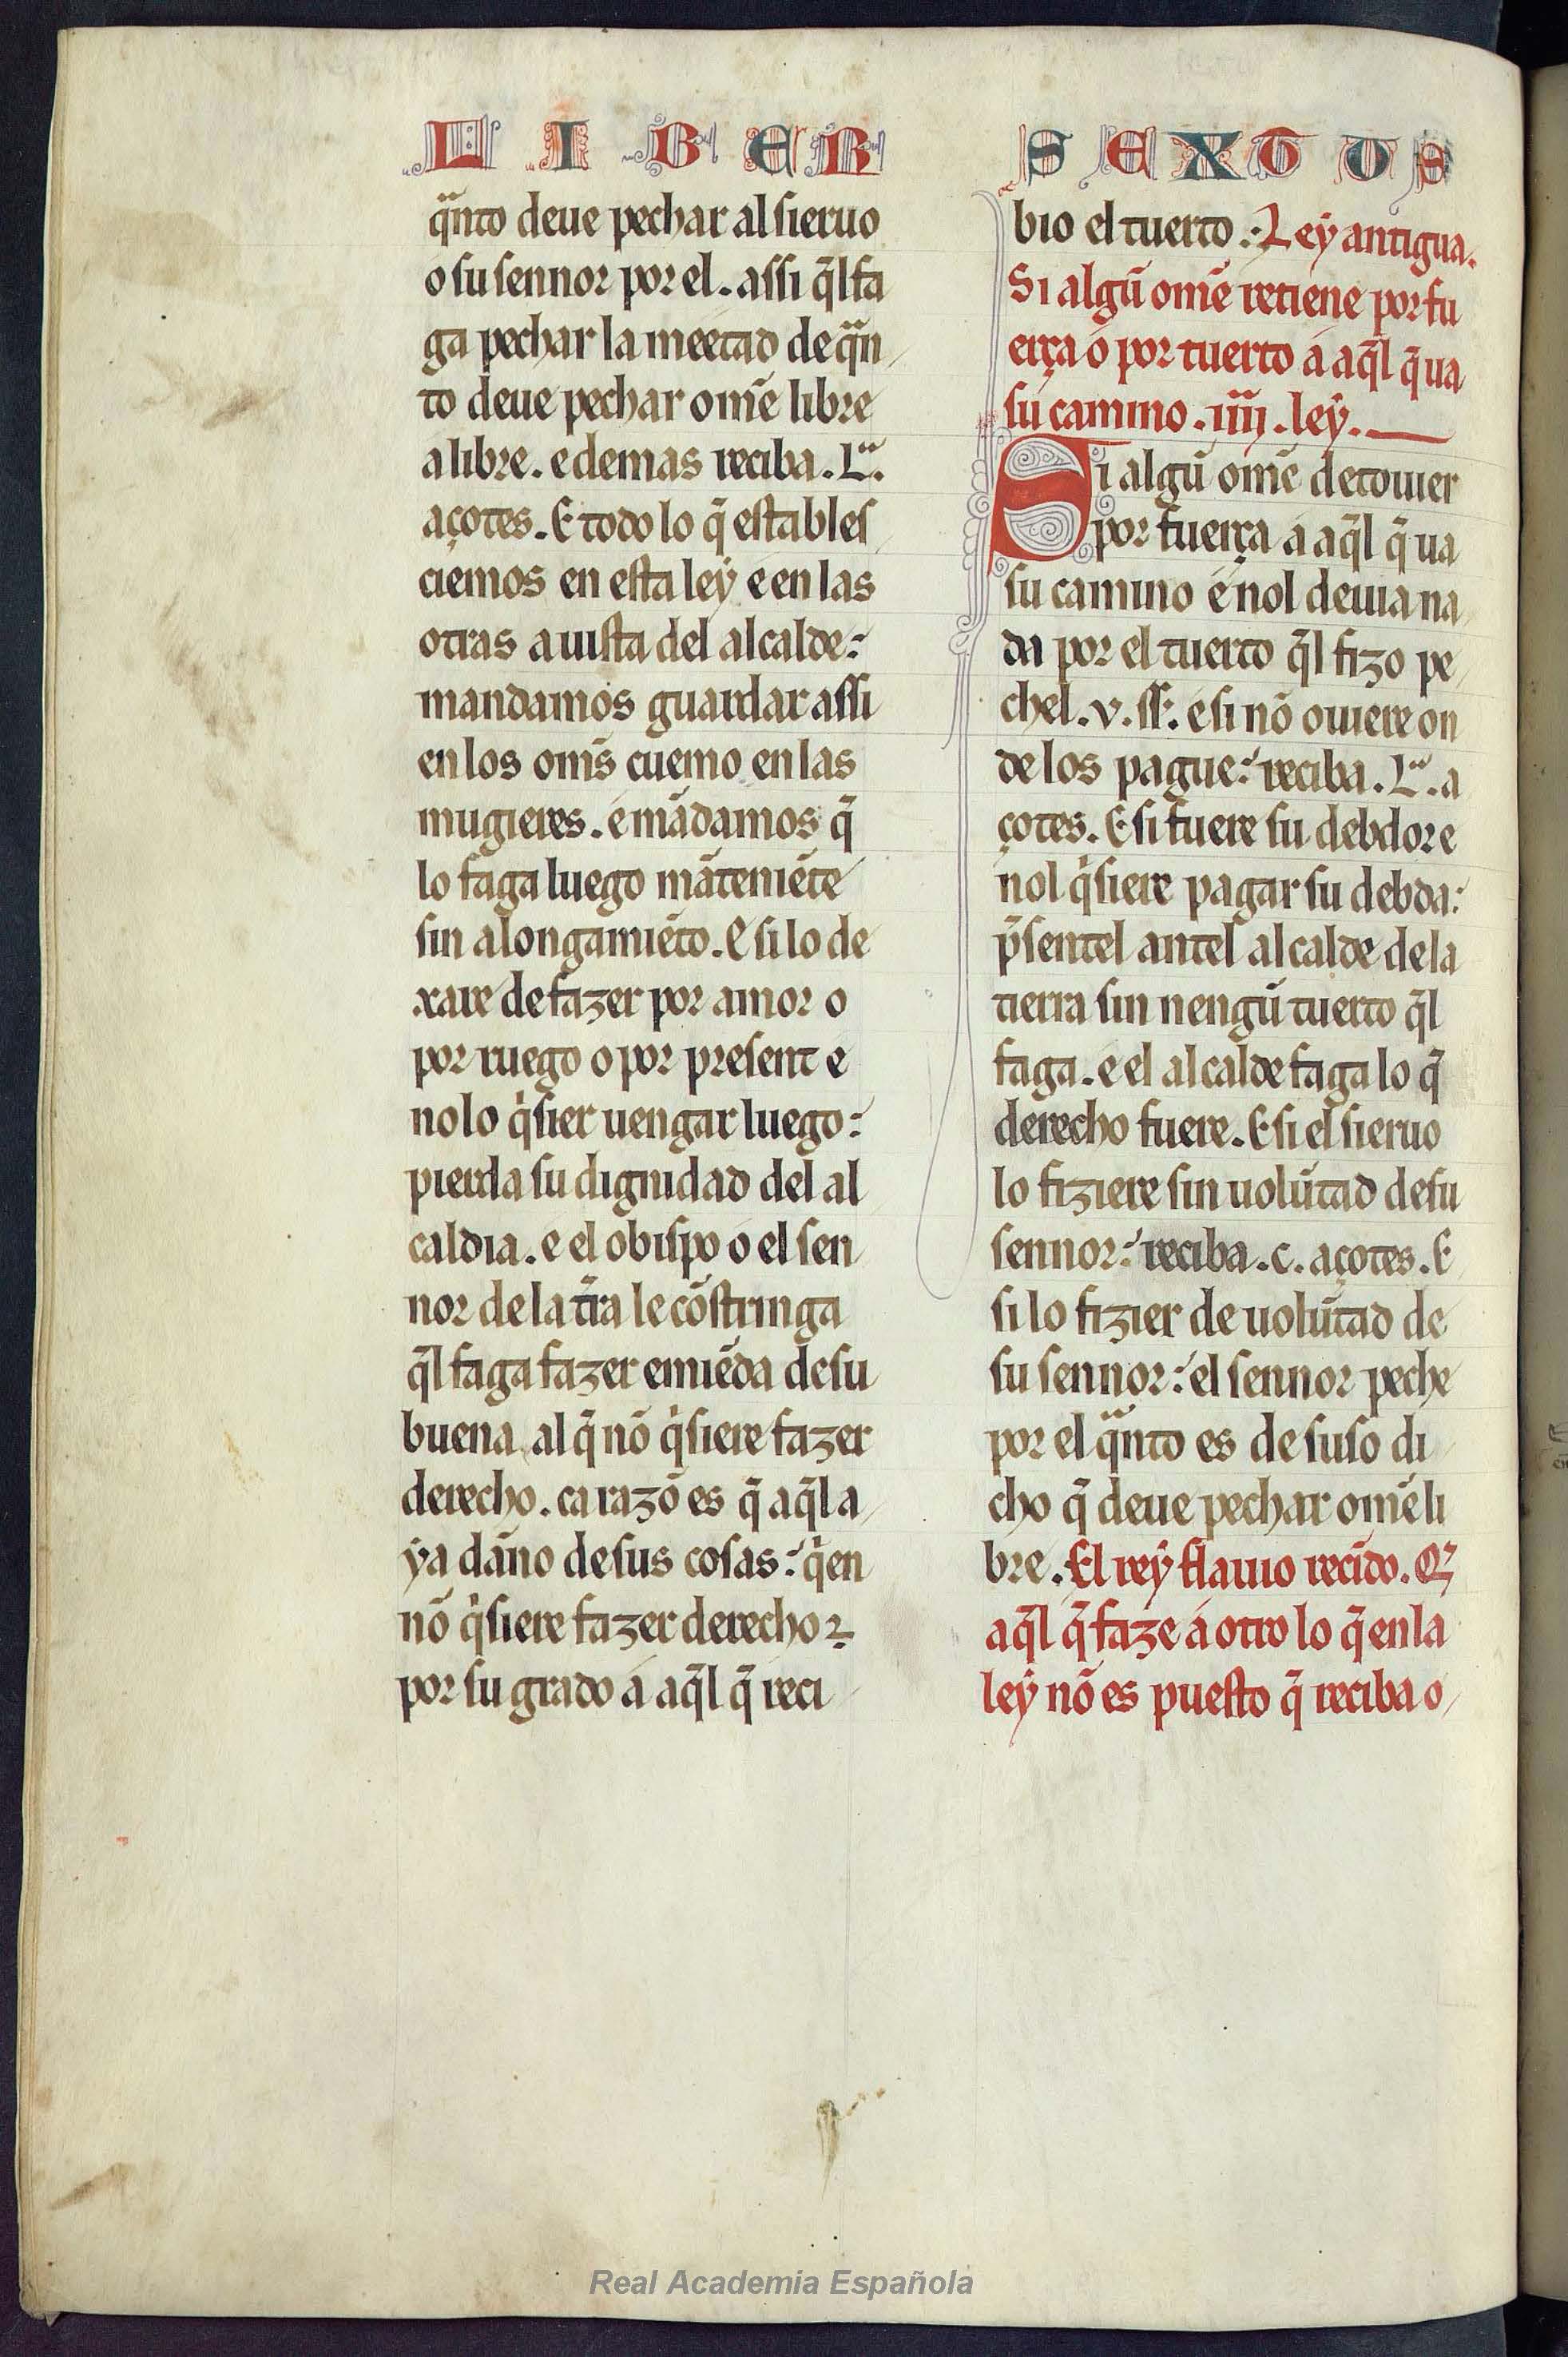 LIBER SEXTUS
q̃nto deue pechar al sieruo
o su sennor por el. assi q̃l fa
ga pechar la meetad de q̃n
to deue pechar om̃e libre
a libre. e demas reciba. L.ª
açotes. E todo lo q̃ estables
ciemos en esta leẏ e en las
otras a uista del alcalde:
mandamos guardar assi
en los om̃s cuemo en las
mugieres. e mãdamos q̃
lo faga luego mãteniẽte
sin alongamiẽto. E si lo de
xare de fazer por amor o
por ruego o por present e
no lo q̇sier uengar luego:
pierda su dignidad del al
caldia. e el obispo o el sen
nor de la tr̃a le cõstringa
q̃l faga fazer emiẽda de su
buena al q̃ nõ q̇siere fazer
derecho. ca razõ es q̃ aq̃l a
ẏa dãno de sus cosas: q̇en
nõ q̇siere fazer derecho ⁊
por su grado á aq̃l q̃ reci
bio el tuerto: Leẏ antigua.
Si algũ om̃e retiene por fu
erça o por tuerto á aq̃l q̃ ua
su camino. iiij. leẏ.
Si algũ om̃e detouier
por fuerça á aq̃l q̃ ua
su camino e nol deuia na
da por el tuerto q̃l fizo pe
chel. v. ss̃. e si nõ ouiere on
de los pague: reciba. L.ª a
çotes. E si fuere su debdor e
nol q̇siere pagar su debda:
p̃sentel antel alcalde de la
tierra sin nengũ tuerto q̃l
faga. e el alcalde faga lo q̃
derecho fuere. E si el sieruo
lo fiziere sin uolũtad de su
sennor: reciba. c. açotes. E
si lo fizier de uolũtad de
su sennor: el sennor peche
por el q̃nto es de suso di
cho q̃ deue pechar om̃e li
bre. El reẏ flauio recĩdo. Q̃
aq̃l q̃ faze á otro lo q̃ en la
leẏ nõ es puesto q̃ reciba o
Real Academia Española